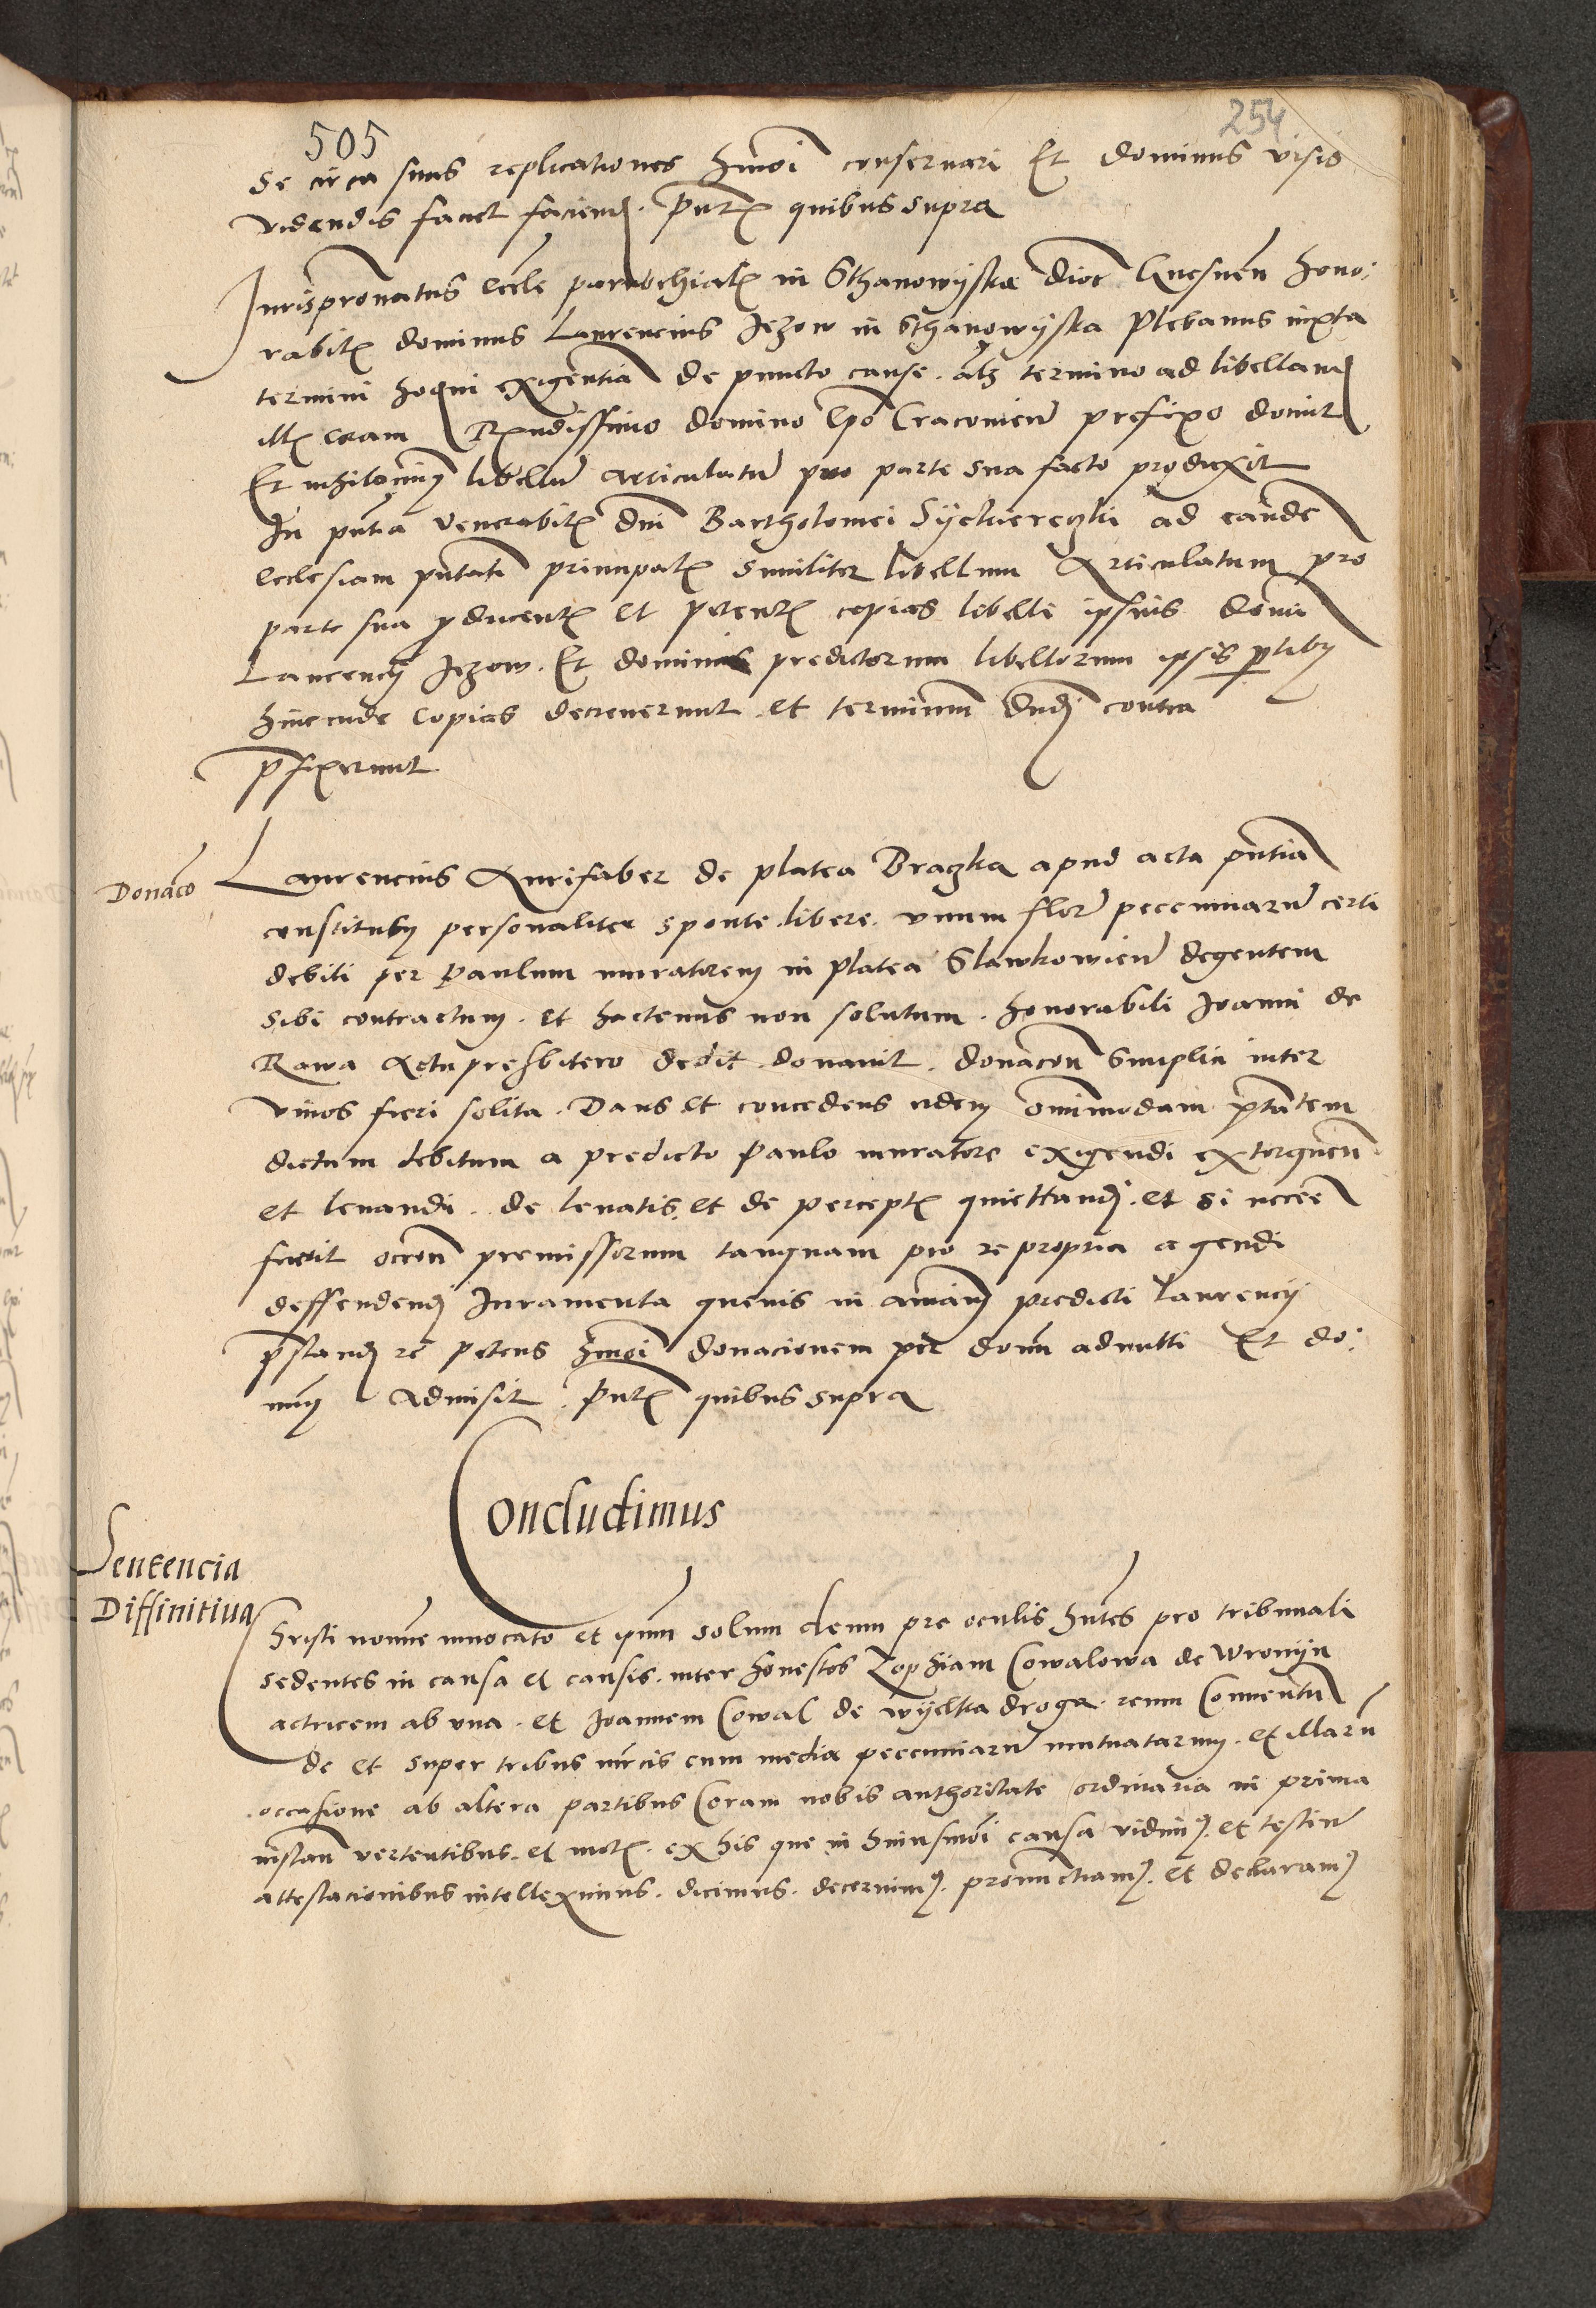 505
254
se circa suas replicationes hmoi conseruari Et dominus visis
videndis facit faciend. Pntt quibus supra
Jurispronatus eccle parrochialis in Sthanowyska dioc Gnesnen hono:
rabilis dominus Laurencius Jezow in Sthanowyska Plebanus iuxta
termini hodierni exigentia de puncto cause. als termino ad libelland
coram Rendissimo domino Epo Cracouien prefixo douit
Et nihilominus libellu articulatu pro parte sua facto produxit
In pntia venerabilis dni Bartholomei ad eande
ecclesiam pntati principalis similiter libellum Articulatum pro
parte sua producentis et petentis copias libelli ipsius domini
Laurencii Jezow. Et dominus predictorum libellorum ipsis partibus
hincinde copias decreuerunt et terminum dnd contra
prefixerunt
Donaco
Laurencius Aurifaber de platea Braczka apud acta pntia
constitutus personaliter sponte. libere. vnum flor pecuniaru certi
debiti per Paulum muratorem in platea Slawkowien degentem
sibi contractum. et hactenus non solutum. honorabili Joanni de
Rawa Actu presbitero dedit donauit. donacon simplici inter
viuos fieri solita. Dans et concedens eidem omnimodam ptatem
dictum debitum a predicto Paulo muratore exigendi extorquen
et leuandi. de leuatis et de perceptis quiettandi. et si neccee
fuerit occon premissorum tanquam pro re propria agendi
deffendendi Iuramenta queuis in animam predicti Laurencij
prestandi rc petens hmoi donacionem per domin admitti Et do:
minus Admisit. Pntt quibus supra
Concludimus
Sentencia
Diffinitiua
Christi nomine inuocato et ipum solum deum pre oculis hntes pro tribunali
sedentes in causa et causis. inter honestos Zophiam Cowalowa de Wronyn
actricem ab vna. et Joannem Cowal de Wyelka droga. reum Conuentu
de et super tribus mrcis cum media pecuniaru mutuatarum. et illaru
occasione ab altera partibus Coram nobis authoritate ordinaria in prima
instan vertentibus. et motis. ex his que in huiusmoi causa vidimus. et testiu
attestacionibus intelleximus. dicimus. decernimus. pronunctiamus. et declaramus